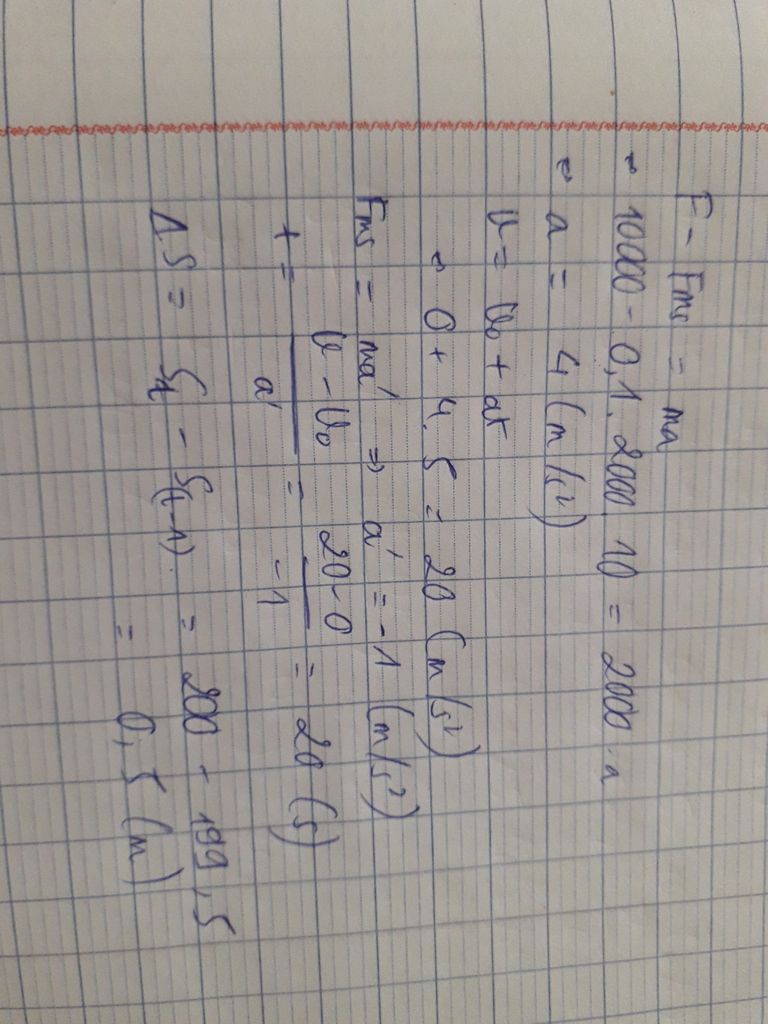 F - Fms = ma
⇔ 10000 - 0,1. 2000. 10 = 2000 . a
⇔ a = 4 (m/s²)
v = v₀ + at
⇔ 0 + 4.5 = 20 (m/s²)
Fms = ma' ⇒ a' = -1 (m/s²)
t = (v - v₀)/a' = (20 - 0)/-1 = 20 (s)
ΔS = S_t - S_(t-1) = 200 - 199,5
= 0,5 (m)